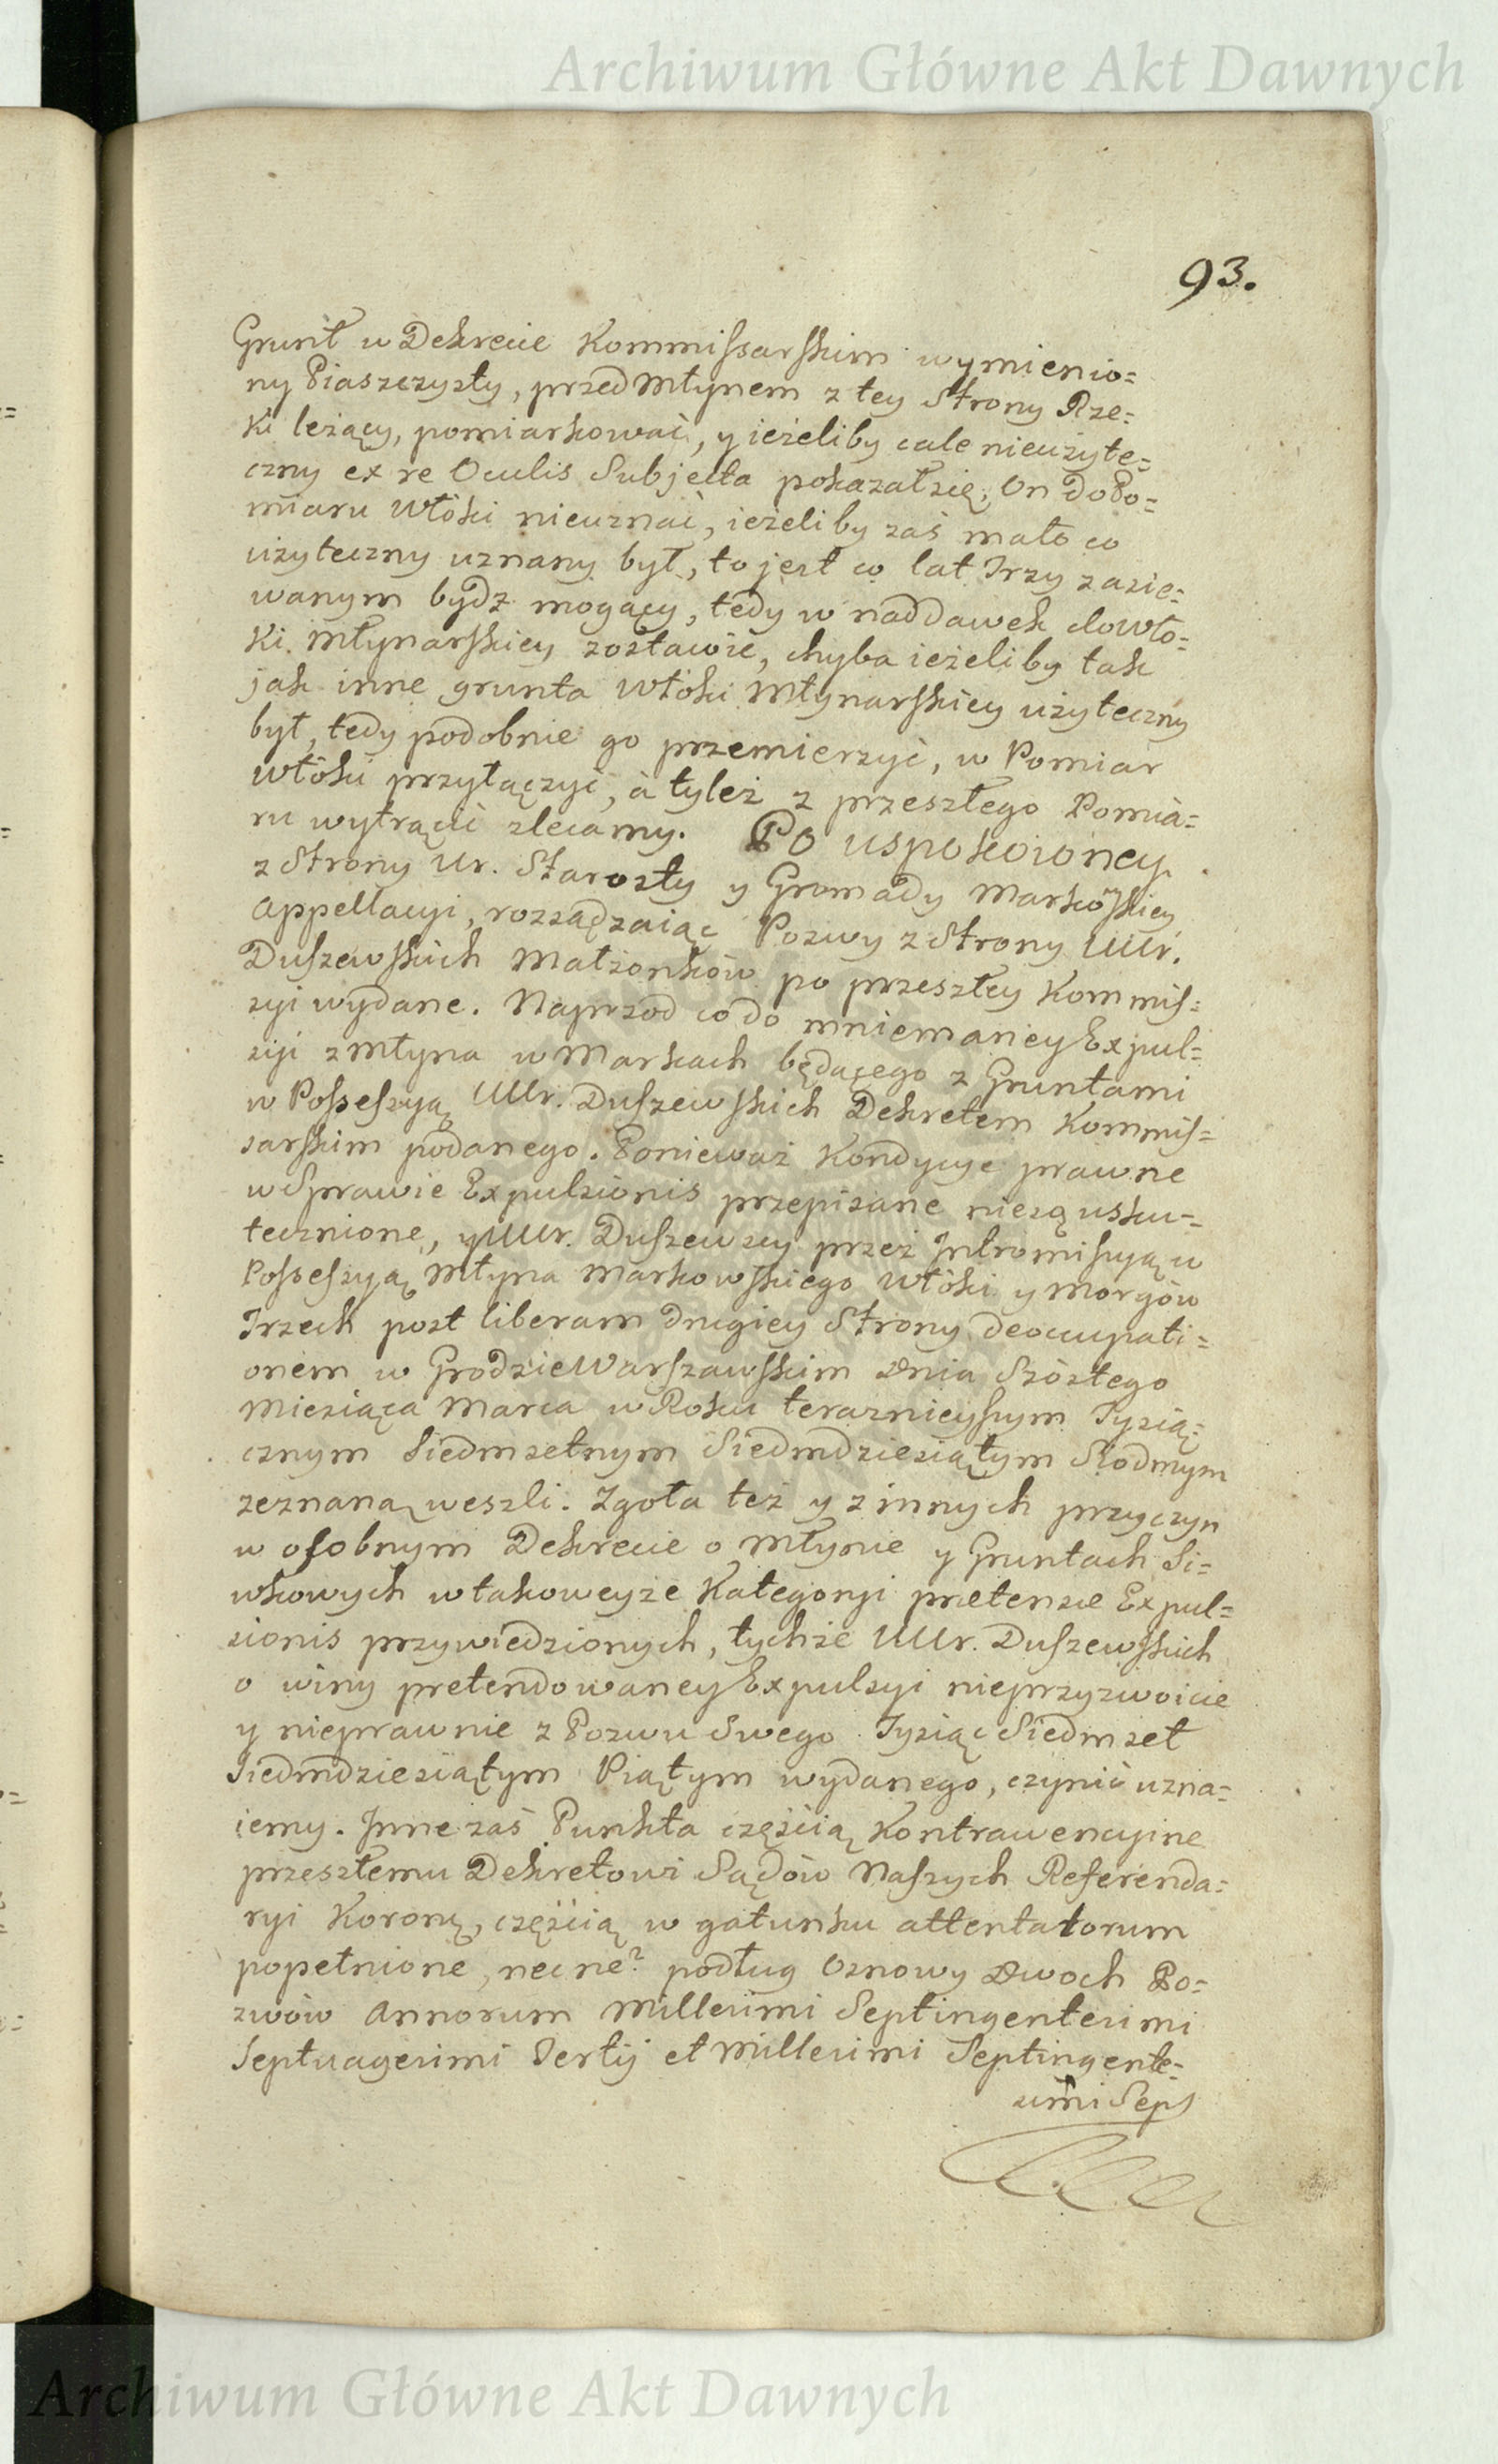 Archiwum Główne Akt Dawnych
93.
Grunt w Dekrecie Kommissarskim wymienio=
ny Piaszczysty, przed Młynem z tey Strony Rze=
ki leżący, pomiarkować, y ieżeliby cale nieużyte=
czny ex re Oculis Subjecta pokazał się, On do Po=
miaru Włóki nieuznać, ieżeliby zaś mało co
użyteczny uznany był, to jest co lat Trzy zasie=
wanym bydz mogący, tedy w naddawek do Wło=
ki Młynarskiey zostawić, chyba ieżeliby tak
jak inne grunta Włóki Młynarskiey użyteczny
był, tedy podobnie go przemierzyć, w Pomiar
Włóki przyłączyć, á tyleż z przeszłego Pomia=
ru wytrącić zlecamy. Po uspokoioney
z Strony Ur. Starosty y Gromady Markowskiey
Appellacyi, rozsądzaiąc Pozwy z Strony UUr.
Duszewskich Małżonków po przeszłey Kommis=
syi wydane. Naprzod co do mniemaney Expul=
syi z Młyna w Markach będącego z Gruntami
w Possessyą UUr. Duszewskich Dekretem Kommis=
sarskim podanego. Ponieważ Kondycye prawne
w Sprawie Expulsionis przepisane nie są usku=
tecznione, y UUr. Duszewscy przez Intromissyą w
Possessyą Młyna Markowskiego Włóki y Morgów
Trzech post liberam drugiey Strony deoccupati=
onem w Grodzie Warszawskim dnia Szóstego
Miesiąca Marca w Roku teraznieyszym Tysią=
cznym Siedmsetnym Siedmdziesiątym Siodmym
zeznaną weszli. Zgoła też y z innych przyczyn
w osobnym Dekrecie o Młynie y Gruntach Si=
wkowych w takoweyże Kategoryi prætensæ Expul=
sionis przywiedzionych, tychże UUr. Duszewskich
o winy pretendowaney Expulsyi nieprzyzwoicie
y nieprawnie z Pozwu Swego Tysiąc Siedmset
Siedmdziesiątym Piątym wydanego, czynić uzna=
iemy. Inne zaś Punkta częścią Kontrawencyine
przeszłemu Dekretowi Sądów Naszych Referenda=
ryi Koronę, częścią w gatunku attentatorum
popełnione, necne? podług Osnowy dwoch Po=
zwów Annorum Millesimi Septingentesimi
Septuagesimi Tertij et Millesimi Septingente=
simi Sept
Archiwum Główne Akt Dawnych